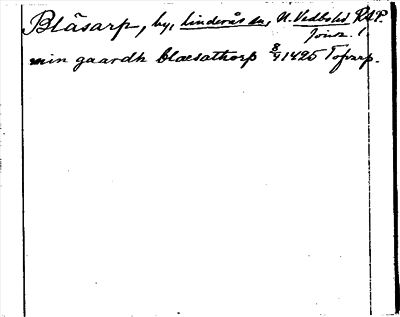 Blåsarp, by, Linderås sn, N. Vedbobd RAP.
Jönk. l.
min gaardh blaesathorp 8/4 1425 Tofarp.